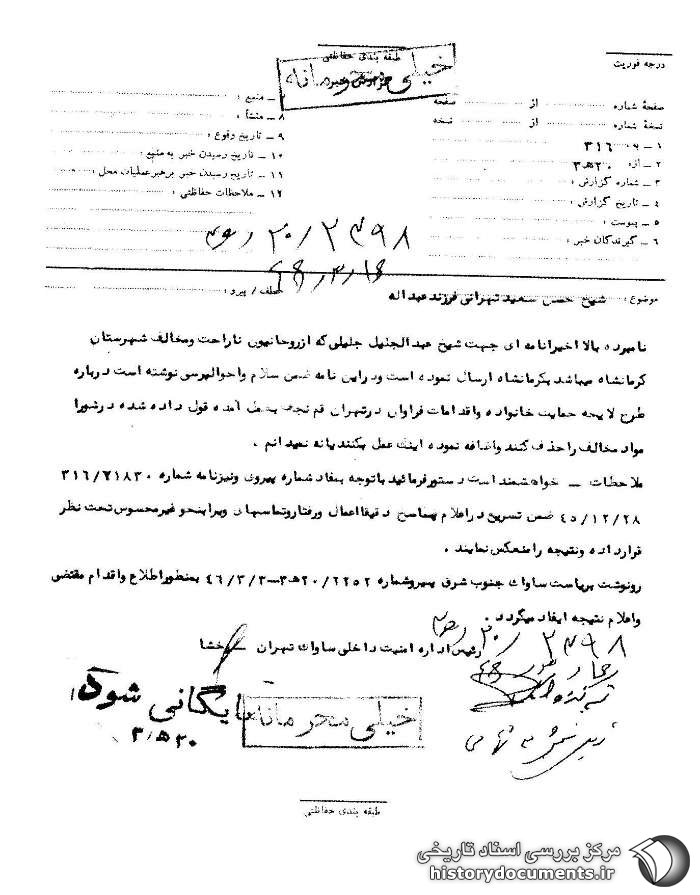 طبقه بندی حفاظتی
خیلی محرمانه
درجه فوریت
صفحهٔ شماره از صفحه
نسخهٔ شماره از نسخه
۱ – به ۳۱۶
۲ – از ۲۰ ه‍ ۳
۳ – شماره گزارش :
۴ – تاریخ گزارش :
۵ – پیوست :
۶ – گیرندگان خبر :
۷ – منبع :
۸ – منشأ :
۹ – تاریخ وقوع :
۱۰ – تاریخ رسیدن خبر به منبع :
۱۱ – تاریخ رسیدن خبر برهبر عملیات محل :
۱۲ – ملاحظات حفاظتی :
۲۰/۲۴۹۸
موضوع : شیخ حسن سعید تهرانی فرزند عبداله
عطف / پیرو :
نامبرده بالا اخیرا نامه ای جهت شیخ عبدالجلیل جلیلی که از روحانیون ناراحت و مخالف شهرستان
کرمانشاه میباشد بکرمانشاه ارسال نموده است و در این نامه ضمن سلام و احوالپرسی نوشته است درباره
طرح لایحه حمایت خانواده و اقدامات فراوان در تهران قم نجف بعمل آمده قول داده شده در شورا
مواد مخالف را حذف کنند و اضافه نموده اینک عمل بکنند یا نه نمیدانم .
ملاحظات – خواهشمند است دستور فرمائید با توجه بمفاد شماره پیروی و نیز نامه شماره ۳۱۶/۲۱۸۳۰
۴۵/۱۲/۲۸ ضمن تسریع در اعلام پاسخ دقیقا اعمال و رفتار و تماسهای ویرا بنحو غیر محسوس تحت نظر
قرار داده و نتیجه را منعکس نمایند .
رونوشت بریاست ساواک جنوب شرق پیرو شماره ۲۰/۲۲۵۲ ه‍ ۳–۴۶/۳/۳ بمنظور اطلاع و اقدام مقتضی
و اعلام نتیجه ایفاد میگردد .
رئیس اداره امنیت داخلی ساواک تهران
۲۰/۲۴۹۸
بایگانی شود
۲۰ ه‍ ۳
خیلی محرمانه
طبقه بندی حفاظتی
مرکز بررسی اسناد تاریخی
historydocuments.ir